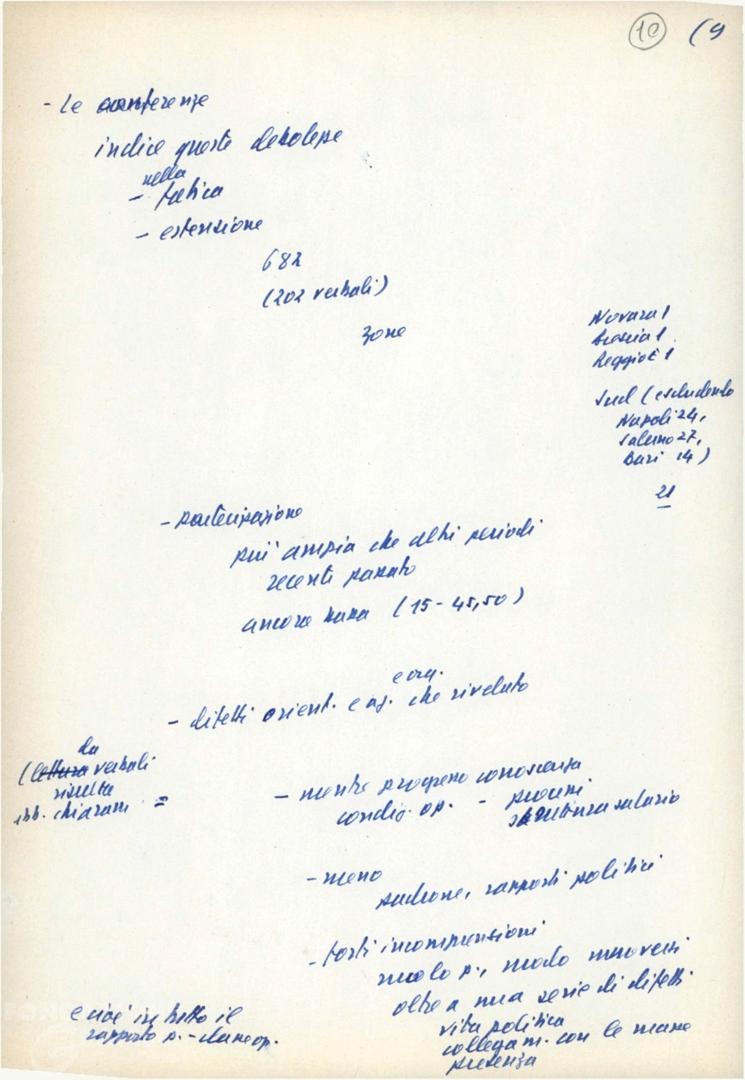 10 (9
- Le conferenze
indice queste debolezze
nella
- fabbrica
- estensione
682
(202 verbali)
zone
Novara 1
Brescia 1
Reggio E 1
Sud (escludendo
Napoli 24,
Salerno 27,
Bari 14)
21
- partecipazione
più ampia che altri periodi
recenti passato
ancora bassa (15-45,50)
e org.
- difetti orient. e che rivelato
da
(lettura verbali
risulta
abb. chiaram. =
- mentre progresso conoscenza
condiz. op. - processi
struttura salario
- meno
padrone, rapporti politici
- forti incomprensioni
ruolo p., modo muoversi
oltre a una serie di difetti
vita politica
collegam. con le masse
presenza
e cioè in tutto il
rapporto p. - classe op.